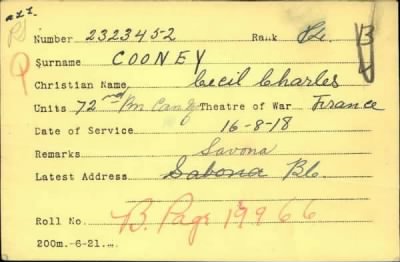 Number 2323452 Rank Pte. B
Surname COONEY
Christian Name Cecil Charles
Units 72nd Bn Can. Theatre of War France
Date of Service 16-8-18
Remarks Savona
Latest Address Sabona B.C.
Roll No. B. Page 19966
200m.-6-21.